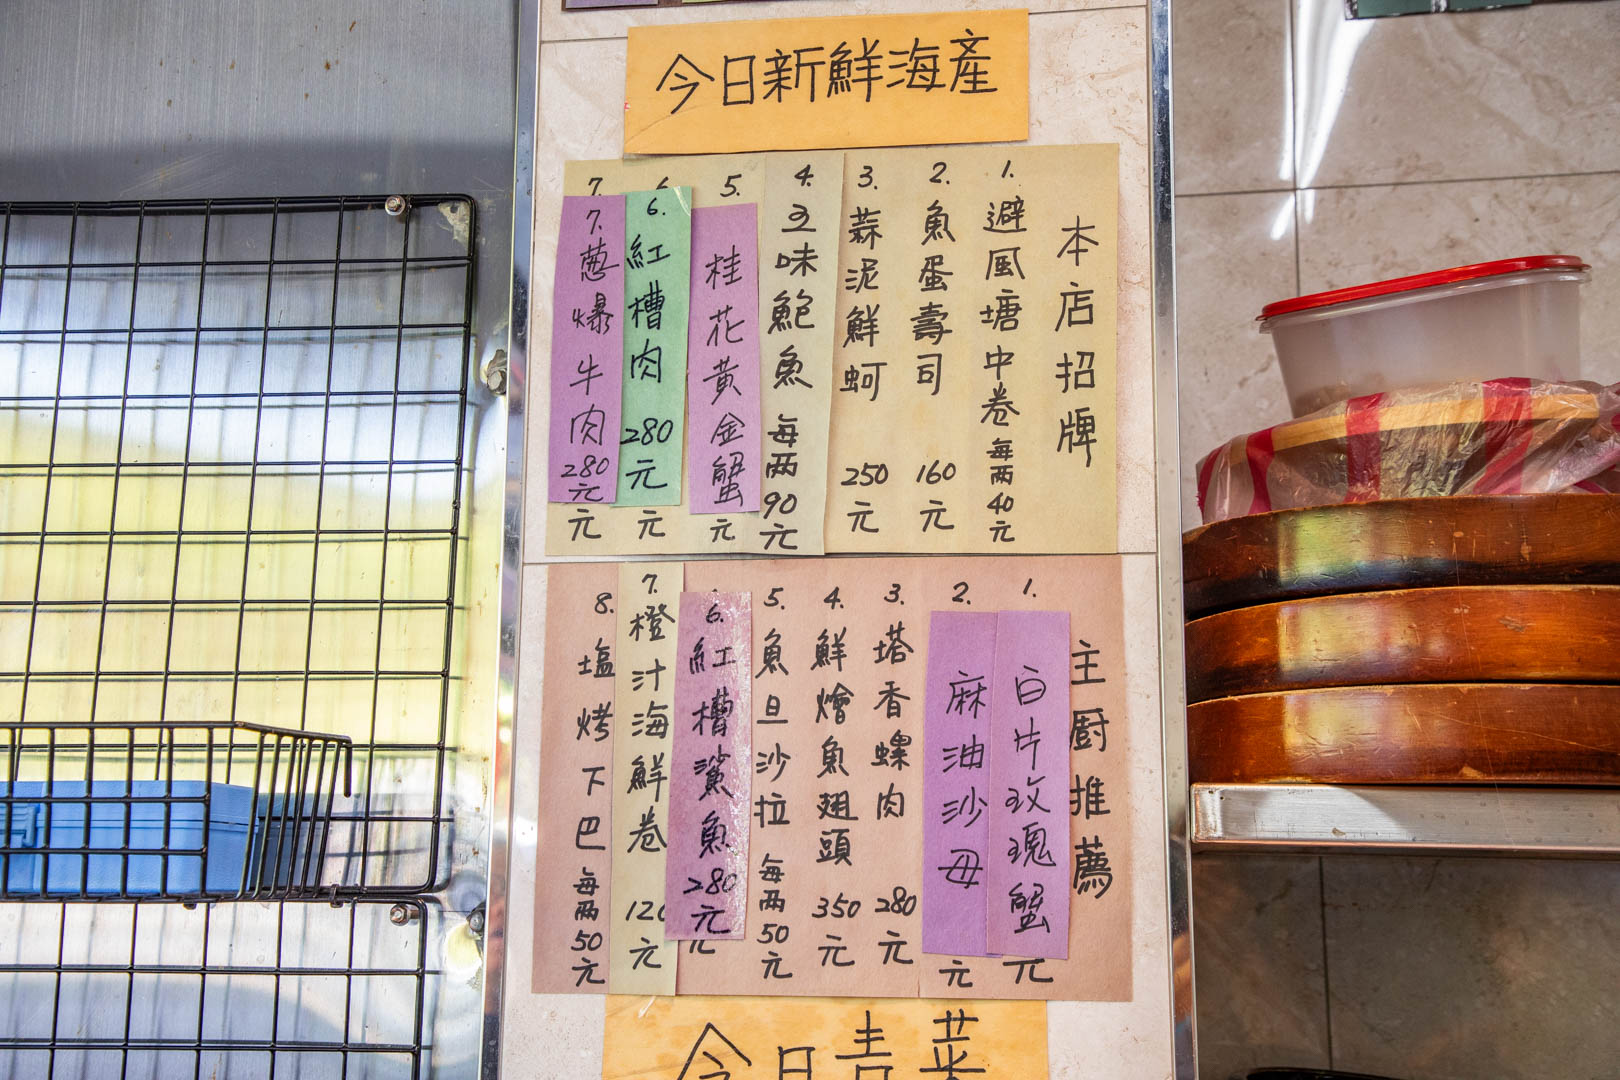 今日新鮮海產
本店招牌
1. 避風塘中卷 每両40元
2. 魚蛋壽司 160元
3. 蒜泥鮮蚵 250元
4. 五味鮑魚 每両90元
5. 桂花黃金蟹 元
6. 紅槽肉 280元 元
7. 7. 蔥爆牛肉 280元 元
主厨推薦
1. 白片玫瑰蟹 元
2. 麻油沙母 元
3. 塔香螺肉 280元
4. 鮮燴魚翅頭 350元
5. 魚旦沙拉 每両50元
6. 紅槽鯊魚 280元 元
7. 橙汁海鮮卷 120元
8. 塩烤下巴 每両50元
今日青菜